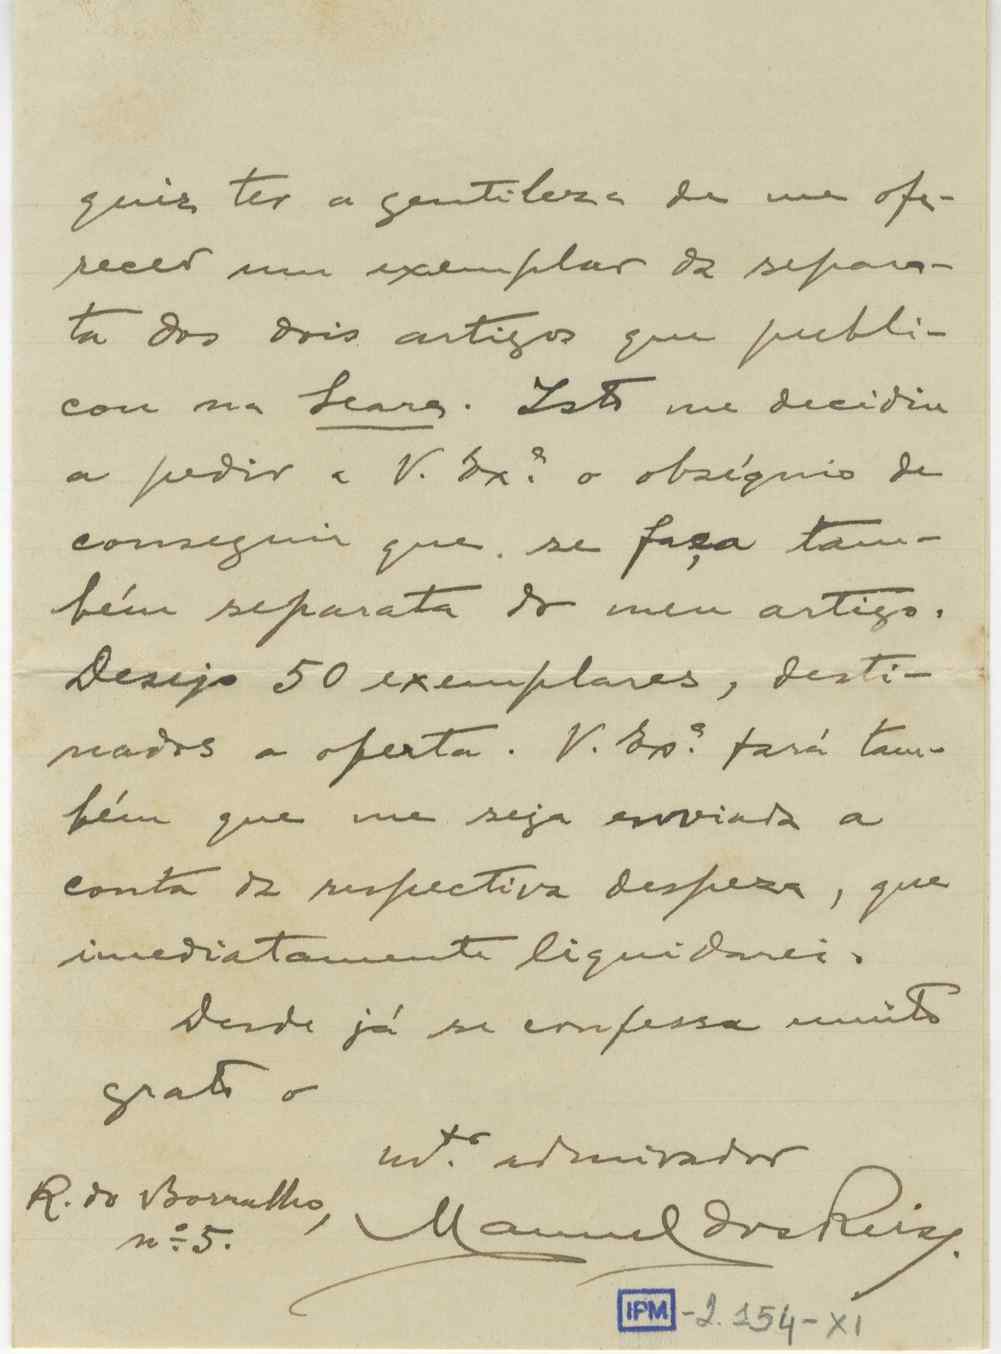 quis ter a gentileza de me ofe-
recer um exemplar da separa-
ta dos dois artigos que publi-
cou na Seara. Isto me decidiu
a pedir a V. Ex.ª o obséquio de
conseguir que se faça tam-
bém separata do meu artigo.
Desejo 50 exemplares, desti-
nados a oferta. V. Ex.ª fará tam-
bém que me seja enviada a
conta da respectiva despeza, que
imediatamente liquidarei.
Desde já se confessa muito
grato o
mt.º admirador
Manuel dos Reis.
R. do Borralho,
n.º 5.
IPM-2.154-XI